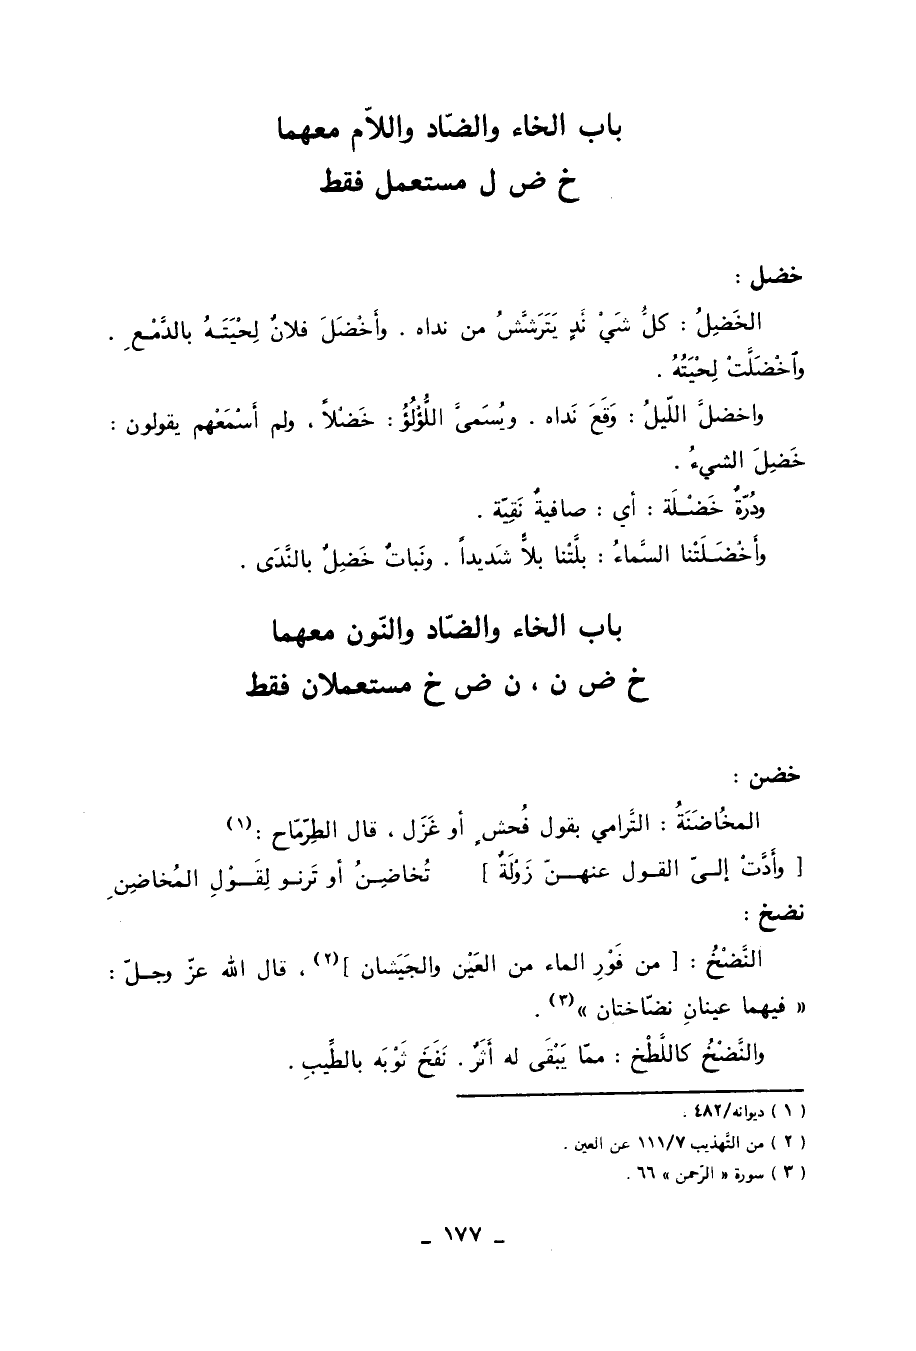 باب الخاء والضّاد واللاّم معهما
خ ض ل مستعمل فقط
خضل :
الخَضِلُ : كلُّ شَيْ نَدٍ يَتَرَشَّشُ من نداه . وأَخْضَلَ فلانٌ لِحْيَتَـهُ بالدَّمْـعِ .
وٱخْضَلَّتْ لِحْيَتُهُ .
واخضلَّ اللّيلُ : وَقَعَ نَداه . ويُسَمىَّ اللُّؤْلُؤُ : خَضْلاً ، ولم أَسْمَعْهم يقولون :
خَضِلَ الشيءُ .
ودُرّةٌ خَضْـلَة : أي : صافيةٌ نَقِيّة .
وأَخْضَـلَتْنا السَّماءُ : بلَّتْنا بلاًّ شَديداً . ونَباتٌ خَضِلٌ بالنَّدَى .
باب الخاء والضّاد والنّون معهما
خ ض ن ، ن ض خ مستعملان فقط
خضن :
المخُاضَنَةُ : التَّرامي بقول فُحشٍ أو غَزَل ، قال الطِرِمّاح :(١)
[ وأَدَّتْ إلـىّ القـول عنهـنّ زَوْلَةٌ ] تُخاضِـنُ أو تَرنـو لِقَـوْلِ المُخاضِنِ
نضخ :
النَّضْخُ : [ من فَوْرِ الماء من العَيْن والجَيَشان ](٢) ، قال الله عزّ وجـلّ :
« فيهما عينانِ نضّاختان »(٣) .
والنَّضْخُ كاللَّطْخ : ممّا يَبْقَى له أَثَرٌ . نَفَخَ ثَوْبَه بالطَّيبِ .
( ١ ) ديوانه/٤٨٢ .
( ٢ ) من التَّهذيب ١١١/٧ عن العين .
( ٣ ) سورة « الرّحمن » ٦٦ .
ـ ١٧٧ ـ